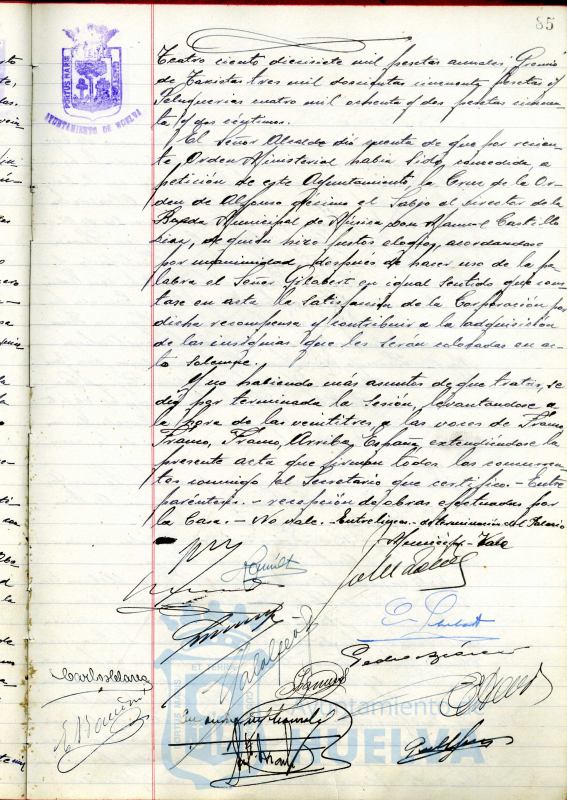 85
PORTUS MARIS ET TERRAE CUSTODIA
AYUNTAMIENTO DE HUELVA
Teatro ciento diecisiete mil pesetas anuales; Gremio
de Taxistas tres mil doscientas cincuenta pesetas y
Peluquerias cuatro mil ochenta y dos pesetas cincuen-
ta y dos céntimos.
El Señor Alcalde dió cuenta de que por recien-
te Orden Ministerial habia sido concedida a
petición de este Ayuntamiento la Cruz de la Or-
den de Alfonso décimo el Sabio al director de la
Banda Municipal de Música Don Manuel Castillo
de quien hizo justos elogios, acordandose
por unanimidad después de hacer uso de la pa-
labra el Señor Gilabert en igual sentido que cons-
tase en acta la satisfacción de la Corporación por
dicha recompensa y contribuir a la adquisición
de las insignias que les serán colocadas en ac-
to solemne.
Y no habiendo más asuntos de que tratar, se
dió por terminada la sesión, levantandose a
la hora de las veintitres a las voces de Franco,
Franco, Franco, Arriba España extendiéndose la
presente acta que firman todos los concurren-
tes conmigo el Secretario que certifico.- Entre
parentesis.- recepción de obras efectuadas por
la Casa.- No vale. Entrelineas.- determinación del Palacio
Municipal.- Vale
Ayuntamiento de
HUELVA